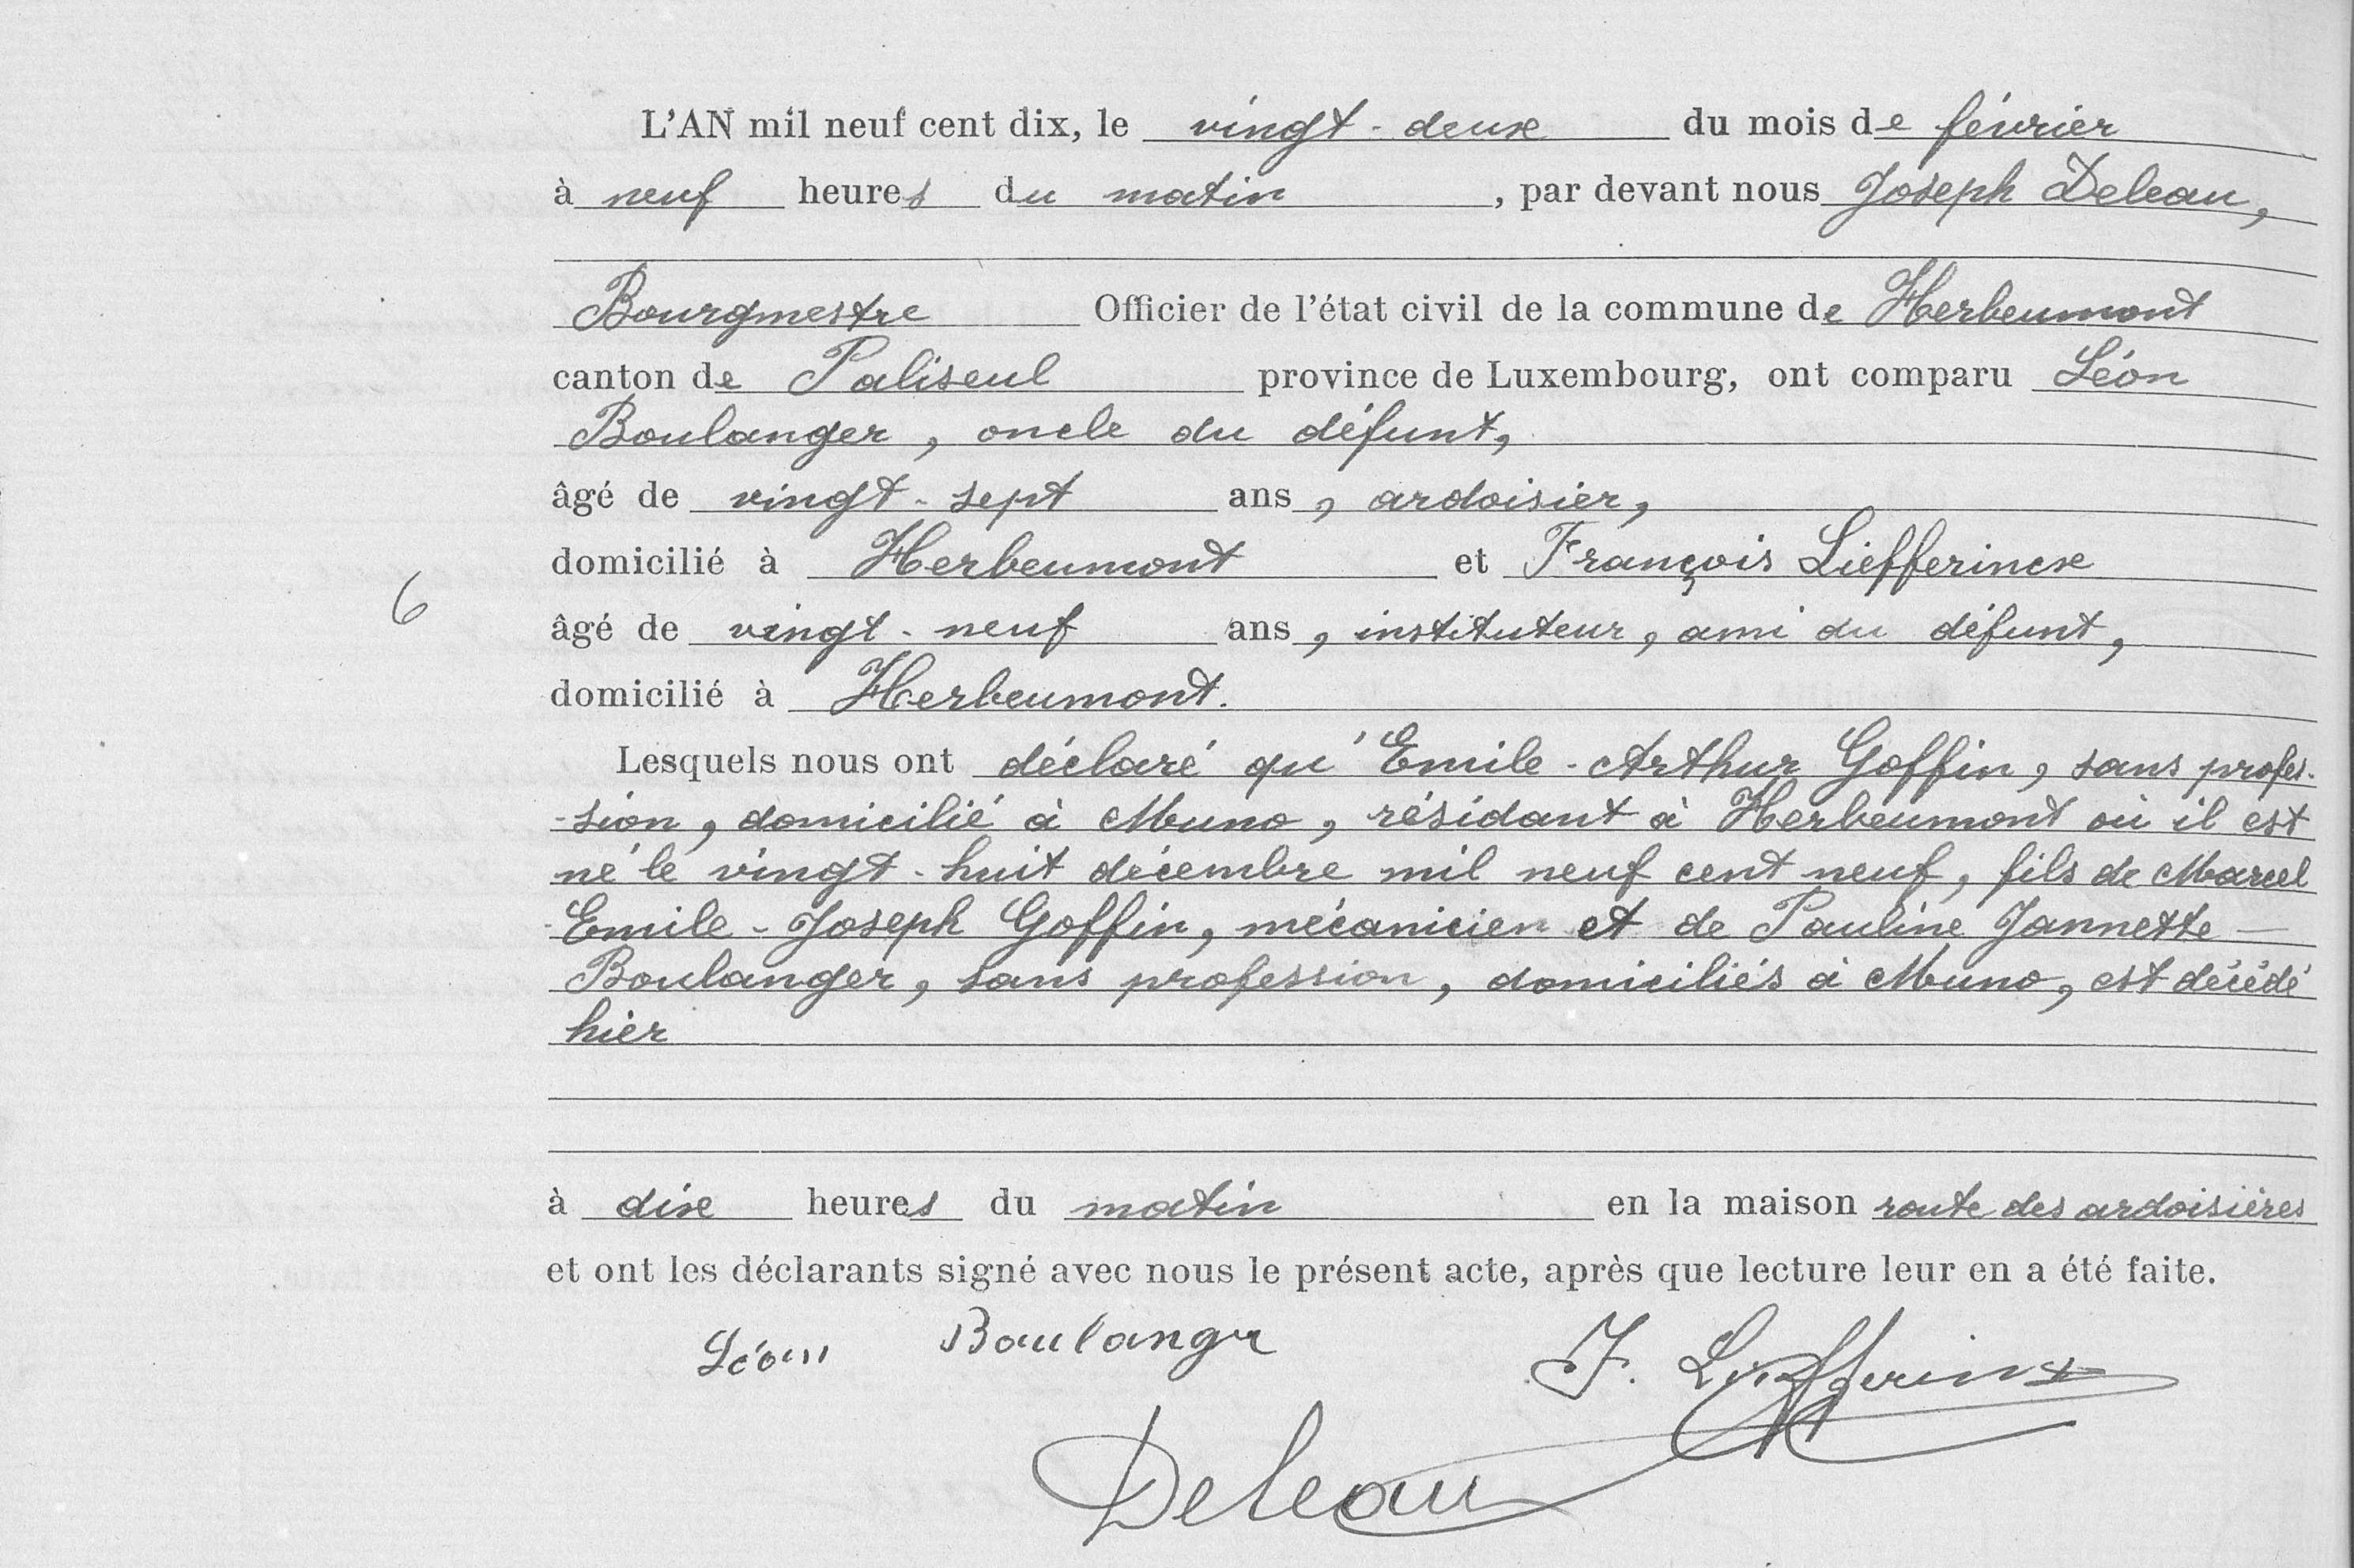 L'AN mil neuf cent dix, le vingt-deux du mois de février
à neuf heures du matin, par devant nous Joseph Deleau,
Bourgmestre Officier de l'état civil de la commune de Herbeumont
canton de Paliseul province de Luxembourg, ont comparu Léon
Boulanger, oncle du défunt,
âgé de vingt-sept ans, ardoisier,
domicilié à Herbeumont et François Liefferincx
6
âgé de vingt-neuf ans, instituteur, ami du défunt,
domicilié à Herbeumont.
Lesquels nous ont déclaré qu'Emile-Arthur Goffin, sans profes-
-sion, domicilié à Muno, résidant à Herbeumont où il est
né le vingt-huit décembre mil neuf cent neuf, fils de Marcel
-Emile-Joseph Goffin, mécanicien et de Pauline Jannette-
Boulanger, sans profession, domiciliés à Muno, est décédé
hier
à dix heures du matin en la maison route des ardoisières
et ont les déclarants signé avec nous le présent acte, après que lecture leur en a été faite.
Léon Boulanger F. Liefferincx
Deleau